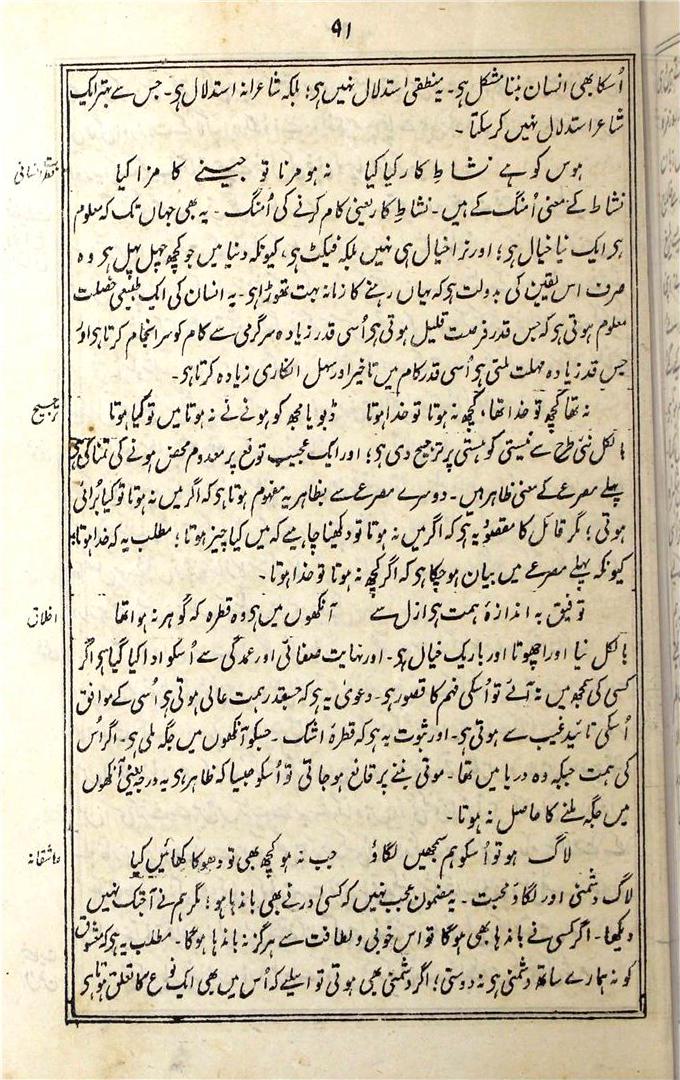 ۹۱
اُسکا بھی انسان بننا مشکل ہی۔ یہ منطقی استدلال نہیں ہی؛ بلکہ شاعرانہ استدلال ہی۔ جس سے بہتر ایک
شاعر استدلال نہیں کرسکتا۔
ہوس کو ہے نشاطِ کار کیا کیا نہ ہو مرنا تو جینے کا مزا کیا
نشاط کے معنی اُمنگ کے ہیں۔ نشاطِ کار یعنی کام کرنے کی اُمنگ۔ یہ بھی جہاں تک کہ معلوم
ہی ایک نیا خیال ہی؛ اور نرا خیال ہی نہیں بلکہ فیکٹ ہی، کیونکہ دنیا میں جو کچھ چہل پہل ہی وہ
صرف اس یقین کی بدولت ہی کہ یہاں رہنے کا زمانہ بہت تھوڑا ہی۔ یہ انسان کی ایک طبیعی خصلت
معلوم ہوتی ہی کہ جس قدر فرصت قلیل ہوتی ہی اُسی قدر زیادہ سرگرمی سے کام کو سرانجام کرتا ہی اور
جس قدر زیادہ مہلت ملتی ہی اُسی قدر کام میں تاخیر اور سہل انگاری زیادہ کرتا ہی۔
ترجیح
نہ تھا کچھ تو خدا تھا، کچھ نہ ہوتا تو خدا ہوتا ڈبویا مجھ کو ہونے نے نہ ہوتا میں تو کیا ہوتا
بالکل نئی طرح سے نیستی کو ہستی پر ترجیح دی ہی؛ اور ایک عجیب توقع پر معدوم محض ہونے کی تمنا کی ہی
پہلے مصرعے کے معنی ظاہر ہیں۔ دوسرے مصرعے سے بظاہر یہ مفہوم ہوتا ہی کہ اگر میں نہ ہوتا تو کیا بُرائی
ہوتی؛ مگر قائل کا مقصود یہ ہی کہ اگر میں نہ ہوتا تو دیکھنا چاہیے کہ میں کیا چیز ہوتا؛ مطلب یہ کہ خدا ہوتا؛
کیونکہ پہلے مصرعے میں بیان ہوچکا ہی کہ اگر کچھ نہ ہوتا تو خدا ہوتا۔
اخلاق
توفیق بہ اندازۂ ہمت ہی ازل سے آنکھوں میں ہی وہ قطرہ کہ گوہر نہ ہوا تھا
بالکل نیا اور اچھوتا اور باریک خیال ہی۔ اور نہایت صفائی اور عمدگی سے اُسکو ادا کیا گیا ہی اگر
کسی کی سمجھ میں نہ آئے تو اُسکی فہم کا قصور ہی۔ دعویٰ یہ ہی کہ جسقدر ہمت عالی ہوتی ہی اُسی کے موافق
اُسکی تائید غیب سے ہوتی ہی۔ اور ثبوت یہ ہی کہ قطرۂ اشک۔ جسکو آنکھوں میں جگہ ملی ہی۔ اگر اُس
کی ہمت جبکہ وہ دریا میں تھا۔ موتی بننے پر قانع ہوجاتی تو اُسکو جیسا کہ ظاہر ہی یہ درجہ یعنی آنکھوں
میں جگہ ملنے کا حاصل نہ ہوتا۔
عاشقانہ
لاگ ہو تو اُسکو ہم سمجھیں لگاؤ جب نہ ہو کچھ بھی تو دھوکا کھائیں کیا
لاگ دشمنی اور لگاؤ محبت۔ یہ مضمون عجب نہیں کہ کسی اور نے بھی باندھا ہو؛ مگر ہم نے آجتک نہیں
دیکھا۔ اگر کسی نے باندھا بھی ہوگا تو اس خوبی و لطافت سے ہرگز نہ باندھا ہوگا۔ مطلب یہ ہی کہ معشوق
کو نہ ہمارے ساتھ دشمنی ہی نہ دوستی؛ اگر دشمنی بھی ہوتی تو اسلیے کہ اُس میں بھی ایک نوع کا تعلق ہوتا ہی